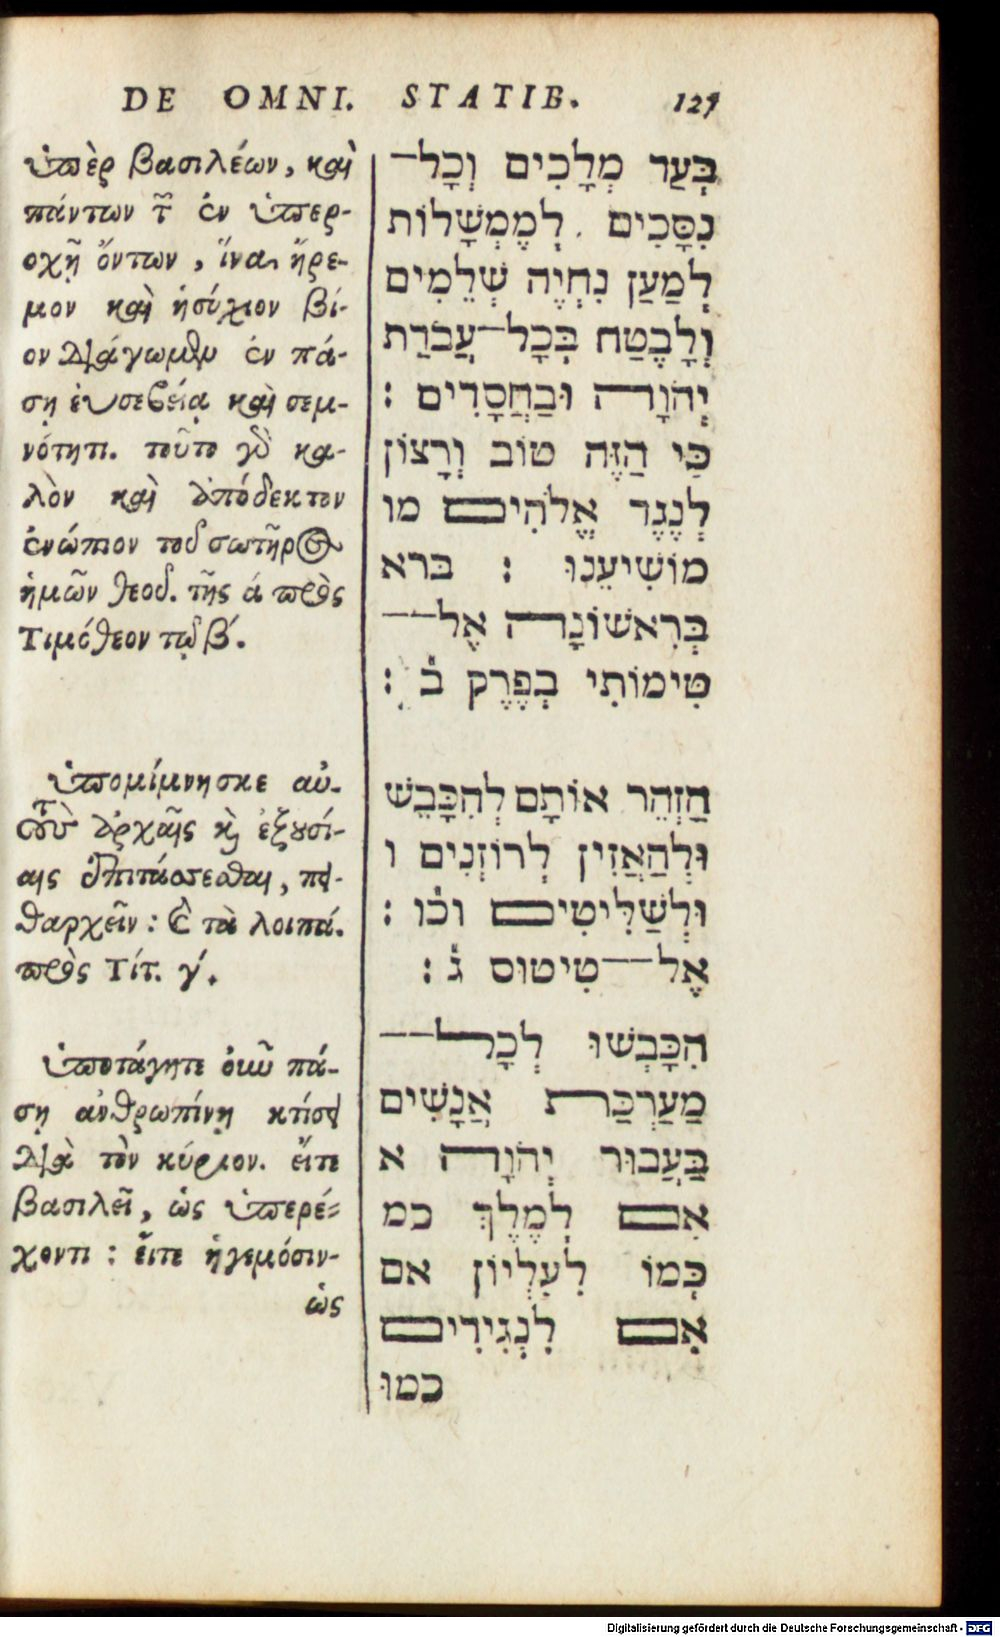 DE OMNI. STATIB. 127
ὑπὲρ βασιλέων, καὶ
πάντων τ῀ ἐν ὑπερ-
οχῇ ὄντων, ἵνα ἤρε-
μον καὶ ἡσύχιον βί-
ον διάγωμεν ἐν πά-
σῃ ἐυσεβείᾳ καὶ σεμ-
νότητι. τοῦτο γὰρ κα-
λὸν καὶ ἀπόδεκτον
ἐνώπιον τοῦ σωτῆρος
ἡμῶν θεοῦ. τῆς ά πρὸς
Τιμόθεον τῷ β΄.
ὑπομίμνησκε αὐ-
τοὺς ἀρχαῖς κὶ ἐξουσί-
αις ὑποτάσσεσθαι, πει-
θαρχεῖν: & τὰ λοιπά.
πρὸς Τίτ. γ΄.
ὑποτάγητε οὖν πά-
σῃ ἀνθρωπίνῃ κτίσει
διὰ τὸν κύριον. εἴτε
βασιλεῖ, ὡς ὑπερέ-
χοντι: εἴτε ἡγεμόσιν-
ὡς
בְּעַד מְלָכִים וְכָל־
נִסָּכִים לְמֶמְשָׁלוֹת
לְמַעַן נִחְיֶה שְׁלֵמִים
וְלָבֶטַח בְּכָל־עֲבֹרַת
יְהֹוָה וּבַחֲסָדִים :
כִּי הַזֶּה טוֹב וְרָצוֹן
לְנֶגֶד אֱלֹהִים מו
מוֹשִׁיעֵנוּ : ברא
בְּרִאשׁוֹנָה אֶל־
טִימוֹתִי בְפֶרֶק ב֗ :
הַזְהֵר אוֹתָם לְהִכָּבֵשׁ
וּלְהַאֲזִין לְרוֹזְנִים ו
וּלְשַׁלִּיטִים וכ֗ו :
אֶל־טִיטוּס ג֗ :
הִכָּבְשׁוּ לְכָל־
מַעַרְכַּת אֲנָשִׁים
בַּעֲבוּר יְהֹוָה א
אִם לְמֶלֶךְ כמ
כְּמוֹ לְעֶלְיוֹן אם
אִם לִנְגִידִים
כמוּ
Digitalisierung gefördert durch die Deutsche Forschungsgemeinschaft - DFG